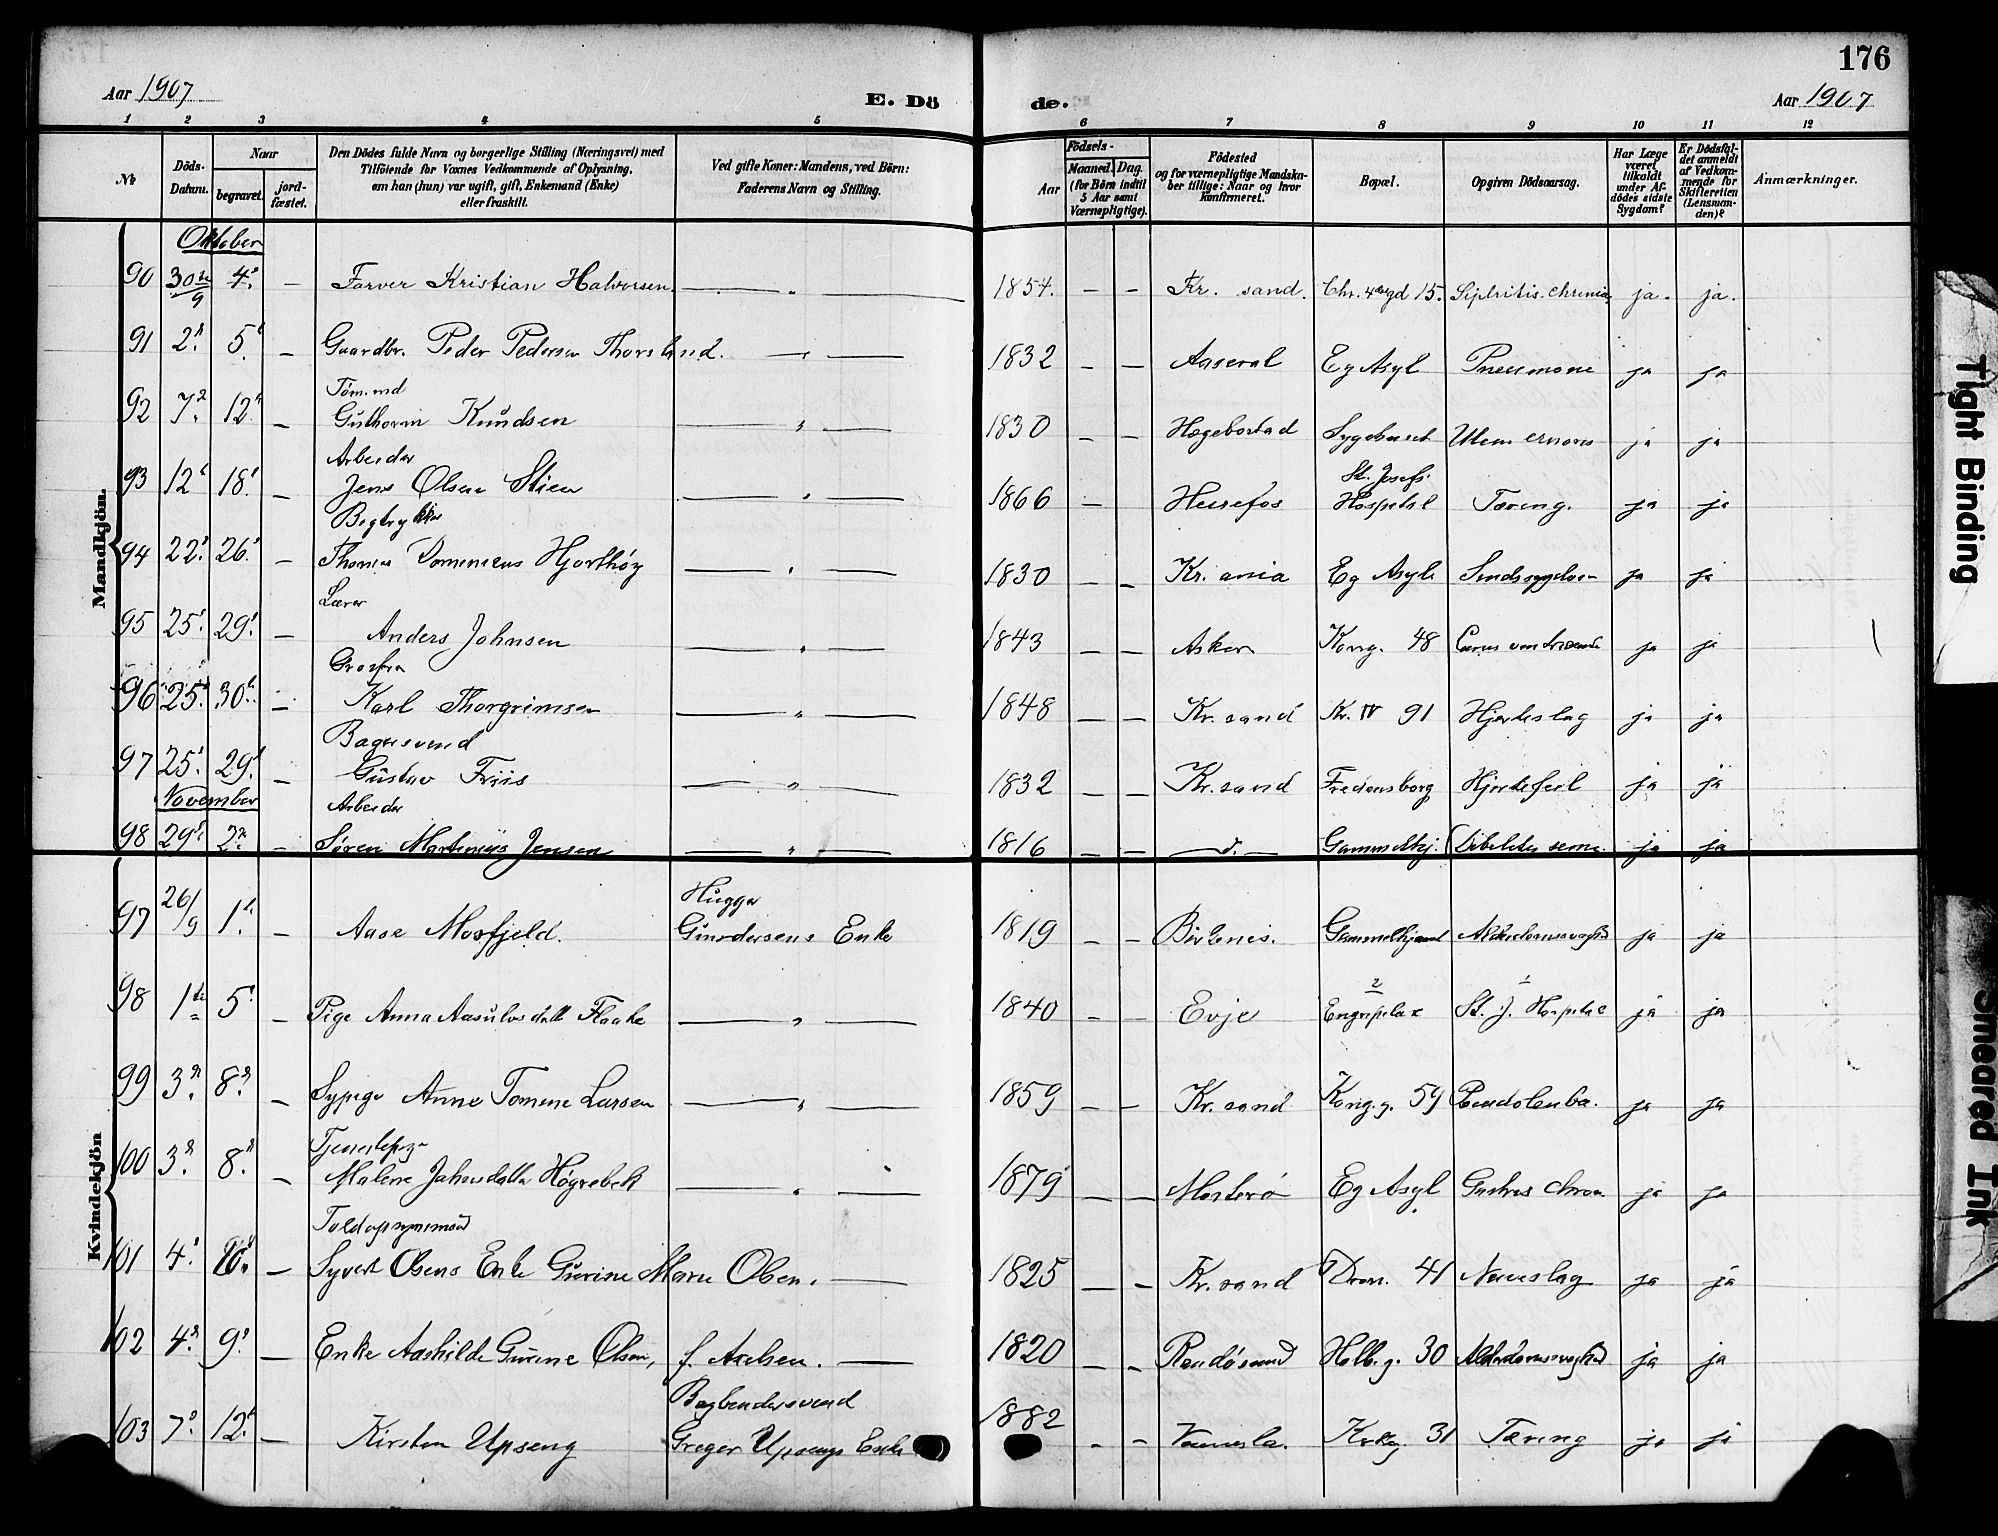 176
Aar 1907 E. Dö de. Aar 1907
1 2 3 4 5 6 7 8 9 10 11 12
No. Döds-Datum. Naar begravet. jord-fæstet. Den Dödes fulde Navn og borgerlige Stilling (Næringsvei) med Tilföiende for Voxnes Vedkommende af Oplysning, om han (hun) var ugift, gift, Enkemand (Enke) eller fraskilt. Ved gifte Koner: Mandens, ved Börn: Faderens Navn og Stilling. Aar Födsels- Maaned. Dag. (for Börn indtil 5 Aar samt Værnepligtige). Födested og for værnepligtige Mandskaber tillige: Naar og hvor konfirmeret. Bopæl. Opgiven Dödsaarsag. Har Læge været tilkaldt under Afdödes sidste Sygdom? Er Dödsfaldet anmeldt af Vedkommende for Skifteretten (Lensmanden)? Anmærkninger.
Mandkjön.
Oktober
90 30te/9 4. — Farver Kristian Halvorsen — 1854. — — Kr. sand. Chr. 4 15. ja. ja.
91 2. 5. — Gaardbr. Peder Pedersen Thorsland. — 1832 — — Aaseral Eg Asyl Pneumone ja ja
Tömmd
92 7. 12. — Guthorm Knudsen — 1830 — — Hægebostad Sygehuset ja ja
Arbeider
93 12. 18. — Jens Olsen Stien — 1866 — Heirefos St. Josefs Hospital Tæring. ja ja
Bogtrykker
94 22. 26. — Thomas Dominicus Hjorthøy — 1830 — — Kr. ania Eg Asyl Sindssygdom ja ja
Lærer
95 25. 29. — Anders Johnsen — 1843 — — Asker Kong. 48 ja ja
96 25. 30. — Karl Thorgrimsen — 1848 — — Kr. sand Kr. IV 91 Hjerteslag ja ja
Bagersvend
97 25. 29. — Gustav Friis — 1832 — — Kr. sand Fredensborg Hjertefeil ja ja
November
Arbeider
98 29. 2. — Søren Martinius Jensen — 1816 — — — d. — Gammelhj. ja ja
Kvindekjön
Hugger
97 26/9 1. — Aase Mosfjeld. Gundersens Enke 1819 — — Birkenes. Gammelhjemmet Alderdomssvaghed ja ja
98 1te 5. — Pige Anna Aasulvsdatt Flaake — 1840 — — Evje St. J. Hospital ja ja
99 3. 8. — Sypige Anne Tomine Larsen — 1859 — — Kr. sand Kong. g. 59 ja ja
Tjenestepige
100 3. 8. — Malene Johnsdatter Høgrebek — 1879 — — Mosterø Eg Asyl ja ja
Toldopsynsmand
101 4. 10. — Syvert Olsens Enke Gurine Marie Olsen. — 1825 — — Kr. sand Dron. 41 ja ja
102 4. 9. — Enke Aashilde Gurine Olsen, f. Axelsen. — 1820 — — Randøsund Holb. g. 30 Alderdomssvaghed ja ja
Bogbindersvend
103 7. 12. — Kirsten Upseng Greger Upsengs Enke 1882 — — Vennesla. Kirkeg. 31 Tæring ja ja
Tight Binding
Smeared Ink